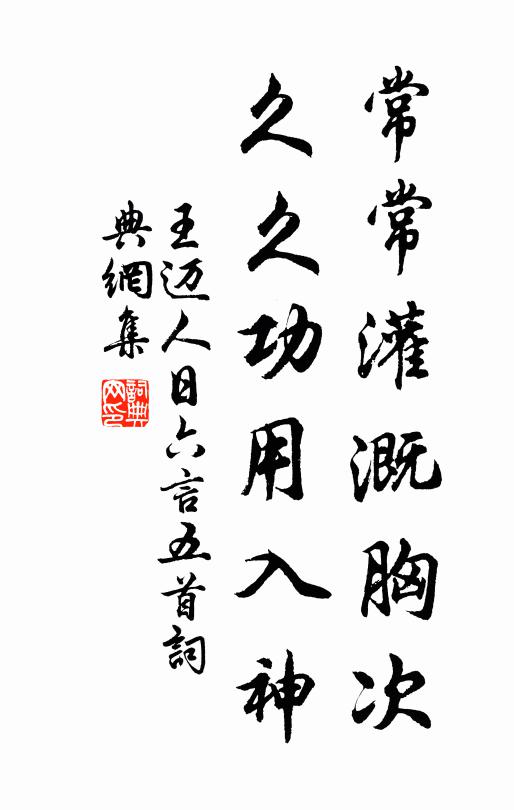 常常灌溉胸次
久久功用入神
王迈人日六言五首詞
典網集
詞典
网印